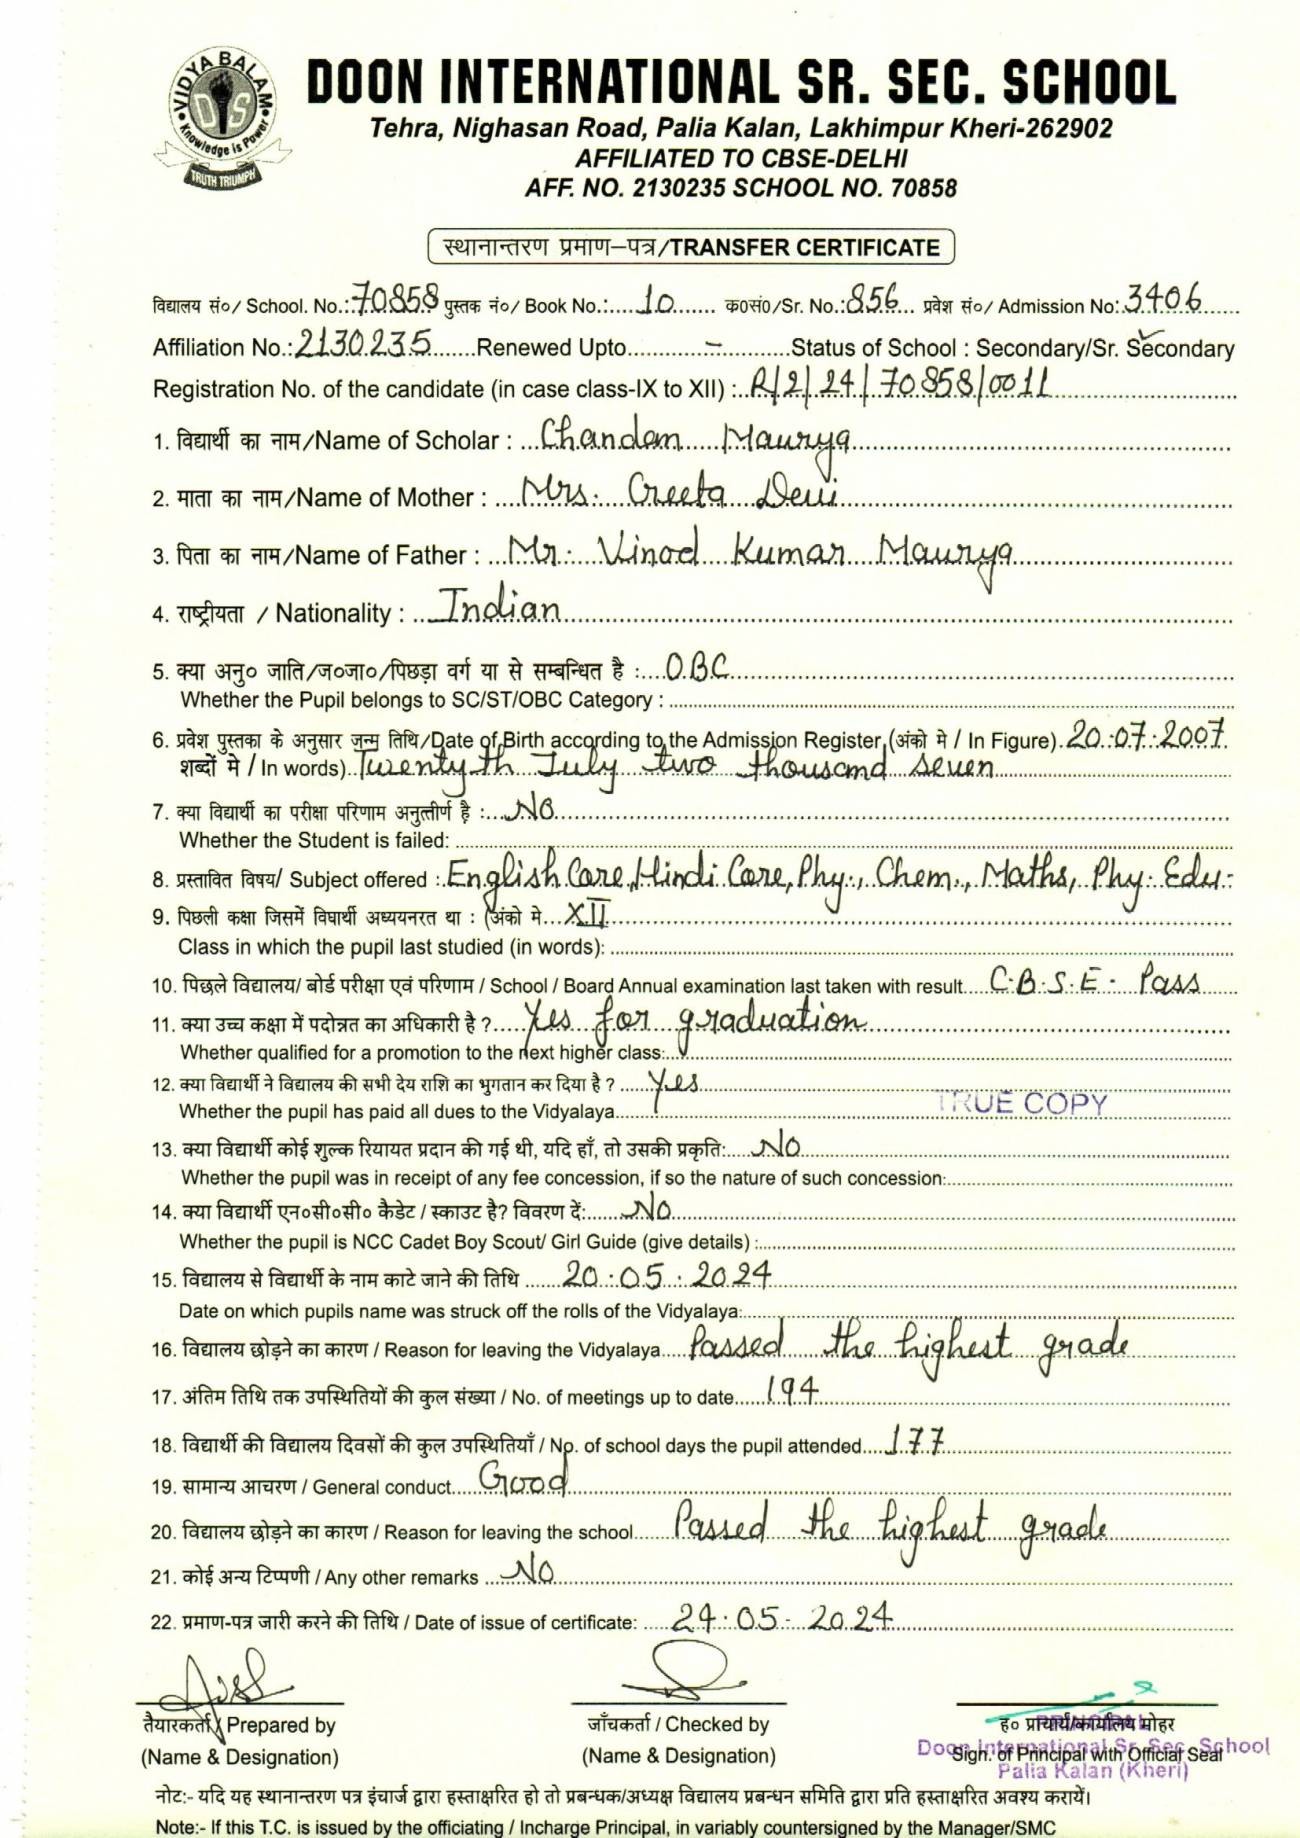 VIDYA BALAM
DIS
Knowledge is Power
TRUTH TRIUMPH
DOON INTERNATIONAL SR. SEC. SCHOOL
Tehra, Nighasan Road, Palia Kalan, Lakhimpur Kheri-262902
AFFILIATED TO CBSE-DELHI
AFF. NO. 2130235 SCHOOL NO. 70858
स्थानान्तरण प्रमाण–पत्र/TRANSFER CERTIFICATE
विद्यालय सं०/ School. No.: 70858 पुस्तक नं०/ Book No.: 10 क०सं०/Sr. No.: 856 प्रवेश सं०/ Admission No: 3406
Affiliation No.: 2130235 Renewed Upto - Status of School : Secondary/Sr. Secondary
Registration No. of the candidate (in case class-IX to XII) : R/2/24/70858/0011
1. विद्यार्थी का नाम/Name of Scholar : Chandan Maurya
2. माता का नाम/Name of Mother : Mrs. Geeta Devi
3. पिता का नाम/Name of Father : Mr. Vinod Kumar Maurya
4. राष्ट्रीयता / Nationality : Indian
5. क्या अनु० जाति/ज०जा०/पिछड़ा वर्ग या से सम्बन्धित है : O.B.C
Whether the Pupil belongs to SC/ST/OBC Category :
6. प्रवेश पुस्तका के अनुसार जन्म तिथि/Date of Birth according to the Admission Register (अंको मे / In Figure) 20.07.2007
शब्दों मे / In words) Twenty th July two thousand seven
7. क्या विद्यार्थी का परीक्षा परिणाम अनुत्तीर्ण है : No
Whether the Student is failed:
8. प्रस्तावित विषय/ Subject offered : English Core, Hindi Core, Phy., Chem., Maths, Phy. Edu.
9. पिछली कक्षा जिसमें विघार्थी अध्ययनरत था : (अंको मे XII
Class in which the pupil last studied (in words):
10. पिछले विद्यालय/ बोर्ड परीक्षा एवं परिणाम / School / Board Annual examination last taken with result C.B.S.E - Pass
11. क्या उच्च कक्षा में पदोन्नत का अधिकारी है ? Yes for graduation
Whether qualified for a promotion to the next higher class:
12. क्या विद्यार्थी ने विद्यालय की सभी देय राशि का भुगतान कर दिया है ? Yes
Whether the pupil has paid all dues to the Vidyalaya
TRUE COPY
13. क्या विद्यार्थी कोई शुल्क रियायत प्रदान की गई थी, यदि हाँ, तो उसकी प्रकृति: No
Whether the pupil was in receipt of any fee concession, if so the nature of such concession:
14. क्या विद्यार्थी एन०सी०सी० कैडेट / स्काउट है? विवरण दें: No
Whether the pupil is NCC Cadet Boy Scout/ Girl Guide (give details) :
15. विद्यालय से विद्यार्थी के नाम काटे जाने की तिथि 20.05.2024
Date on which pupils name was struck off the rolls of the Vidyalaya:
16. विद्यालय छोड़ने का कारण / Reason for leaving the Vidyalaya Passed the highest grade
17. अंतिम तिथि तक उपस्थितियों की कुल संख्या / No. of meetings up to date 194
18. विद्यार्थी की विद्यालय दिवसों की कुल उपस्थितियाँ / No. of school days the pupil attended 177
19. सामान्य आचरण / General conduct Good
20. विद्यालय छोड़ने का कारण / Reason for leaving the school Passed the highest grade
21. कोई अन्य टिप्पणी / Any other remarks No
22. प्रमाण-पत्र जारी करने की तिथि / Date of issue of certificate: 24.05.2024
तैयारकर्ता / Prepared by
(Name & Designation)
जाँचकर्ता / Checked by
(Name & Designation)
ह० प्राचार्य/कार्यालय मोहर
Sign. of Principal with Official Seal
PRINCIPAL
Doon International Sr. Sec. School
Palia Kalan (Kheri)
नोटः- यदि यह स्थानान्तरण पत्र इंचार्ज द्वारा हस्ताक्षरित हो तो प्रबन्धक/अध्यक्ष विद्यालय प्रबन्धन समिति द्वारा प्रति हस्ताक्षरित अवश्य करायें।
Note:- If this T.C. is issued by the officiating / Incharge Principal, in variably countersigned by the Manager/SMC